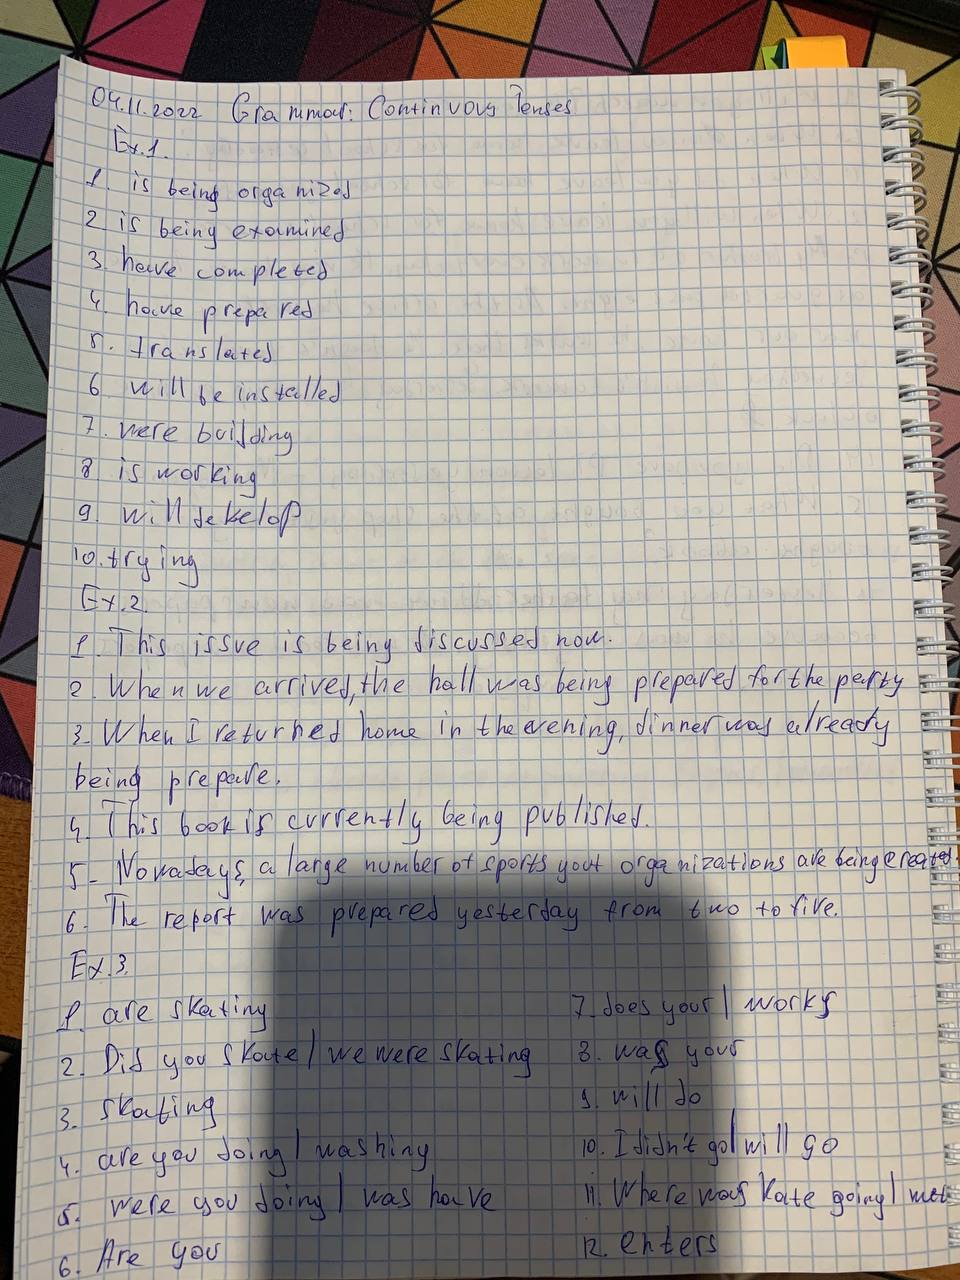 04.11.2022 Grammar: Continuous Tenses
Ex.1.
1. is being organized
2 is being examined
3. have completed
4. have prepared
5. translated
6 will be installed
7. were building
8 is working
9. will dekelop
10. trying
Ex.2.
1. This issue is being discussed now.
2. When we arrived, the hall was being prepared for the party
3. When I returned home in the evening, dinner was already
being prepare.
4. This book is currently being published.
5- Nowadays, a large number of sports yout organizations are being created.
6. The report was prepared yesterday from two to five.
Ex.3.
1. are skating
2. Did you skate / we were skating
3. skating
4. are you doing / washing
5. were you doing / was have
6. Are you
7. does your / works
8. was your
9. will do
10. I didn't go / will go
11. Where was Kate going / met
12. enters